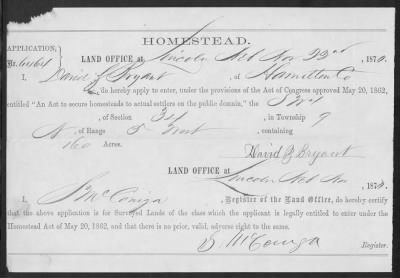 HOMESTEAD.
APPLICATION,
No.
LAND OFFICE at Lincoln Neb Nov 22nd 1870.
I, David Bryant of Hamilton Co
do hereby apply to enter, under the provisions of the Act of Congress approved May 20, 1862,
entitled "An Act to secure homesteads to actual settlers on the public domain," the
of Section 34 in Township 9
N of Range 5 West containing
160 Acres.
David Bryant
LAND OFFICE at
Lincoln Neb Nov 1870.
I, S McConiga, Register of the Land Office, do hereby certify
that the above application is for Surveyed Lands of the class which the applicant is legally entitled to enter under the
Homestead Act of May 20, 1862, and that there is no prior, valid, adverse right to the same.
S. McConiga
Register.